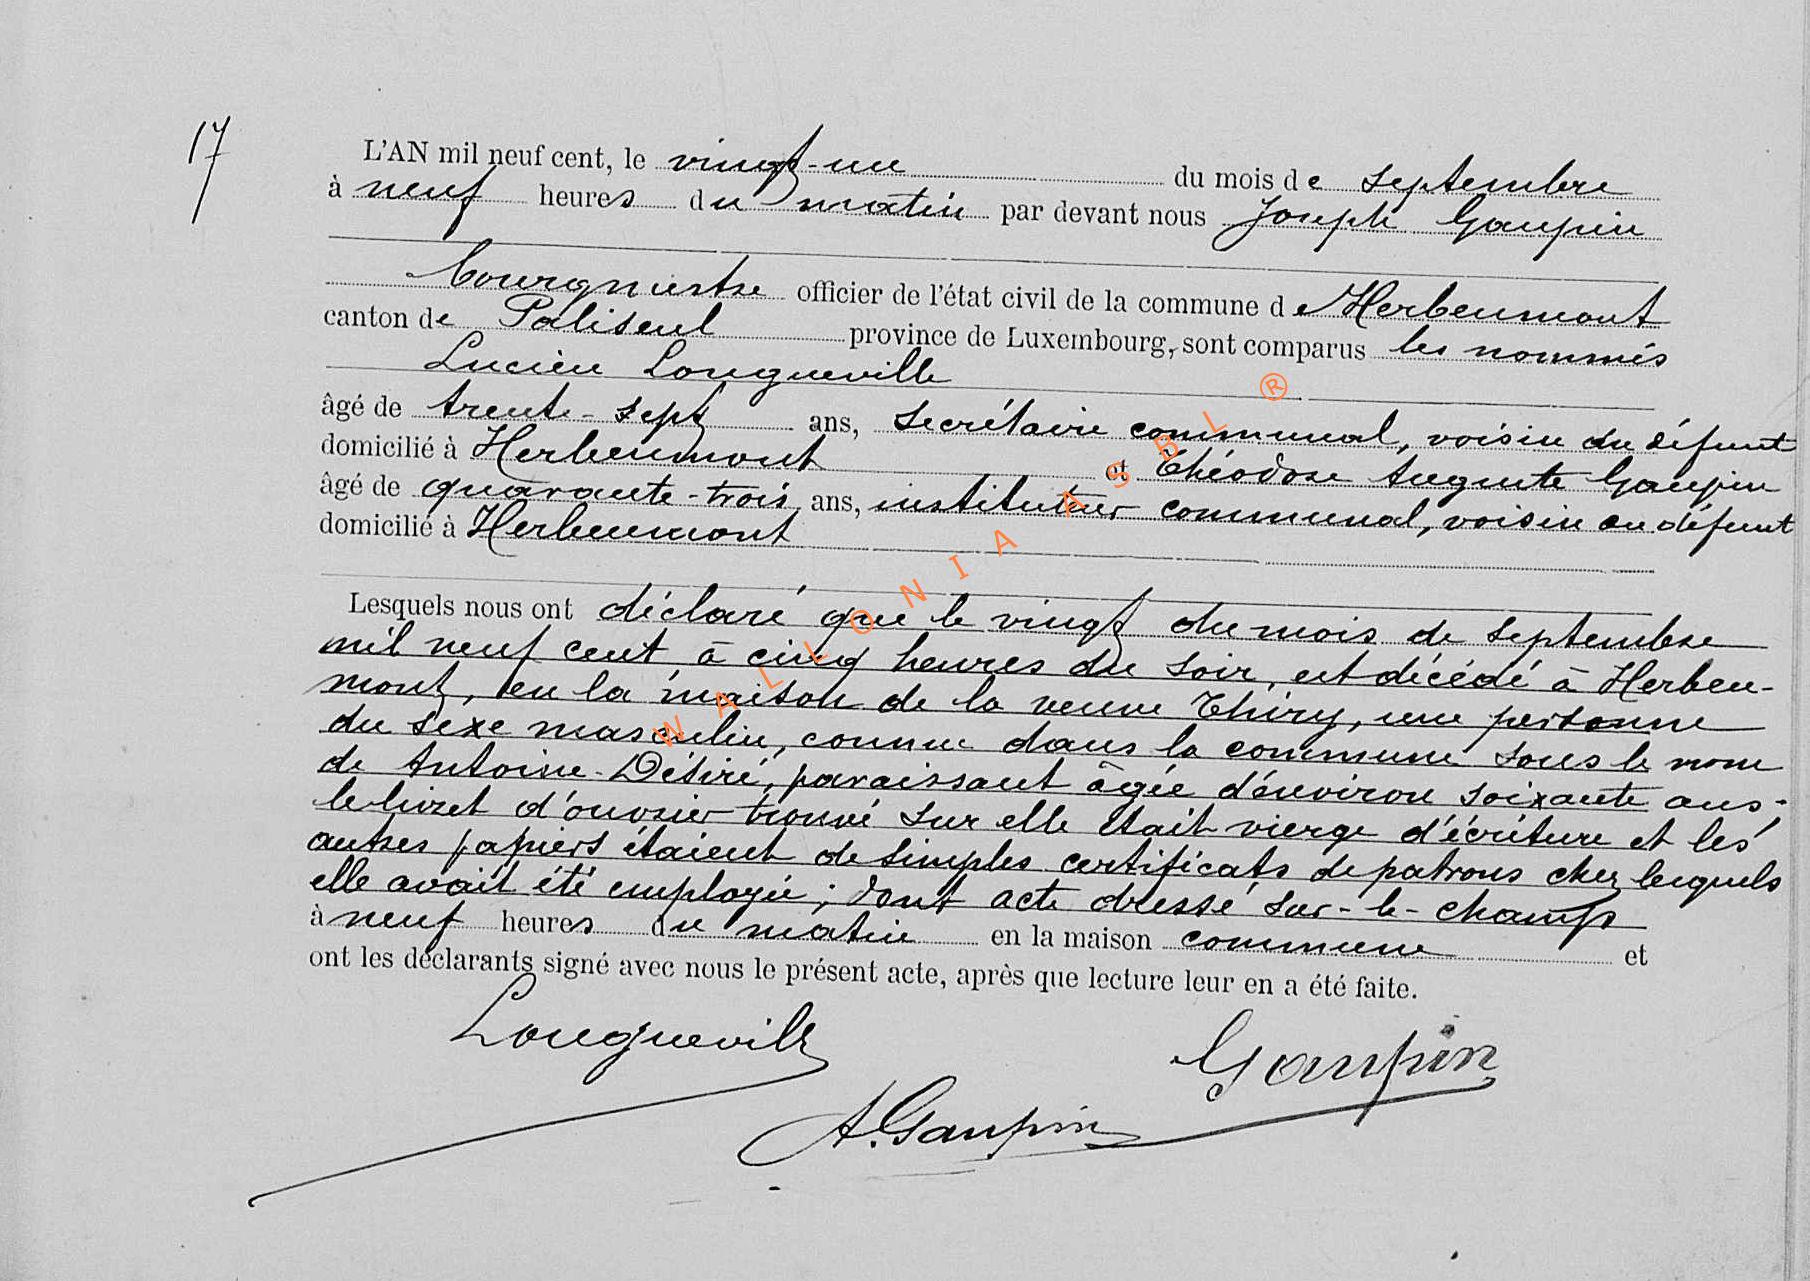 17
L'AN mil neuf cent, le vingt-un du mois de septembre
à neuf heures du matin par devant nous Joseph Gaupin
bourgmestre officier de l'état civil de la commune de Herbeumont
canton de Paliseul province de Luxembourg, sont comparus les nommés
Lucien Longueville
âgé de trente-sept ans, secrétaire communal, voisin du défunt
domicilié à Herbeumont et Théodose Auguste Gaupin
âgé de quarante-trois ans, instituteur communal, voisin du défunt
domicilié à Herbeumont
Lesquels nous ont déclaré que le vingt du mois de septembre
mil neuf cent à cinq heures du soir, est décédé à Herbeu-
mont, en la maison de la veuve Thiry, une personne
du sexe masculin, connue dans la commune sous le nom
de Antoine-Désiré, paraissant âgée d'environ soixante ans;
le livret d'ouvrier trouvé sur elle était vierge d'écriture et les
autres papiers étaient de simples certificats de patrons chez lesquels
elle avait été employée; dont acte dressé sur-le-champ
à neuf heures du matin en la maison commune et
ont les déclarants signé avec nous le présent acte, après que lecture leur en a été faite.
Longueville
Gaupin
A. Gaupin
WALLONIA ASBL ®